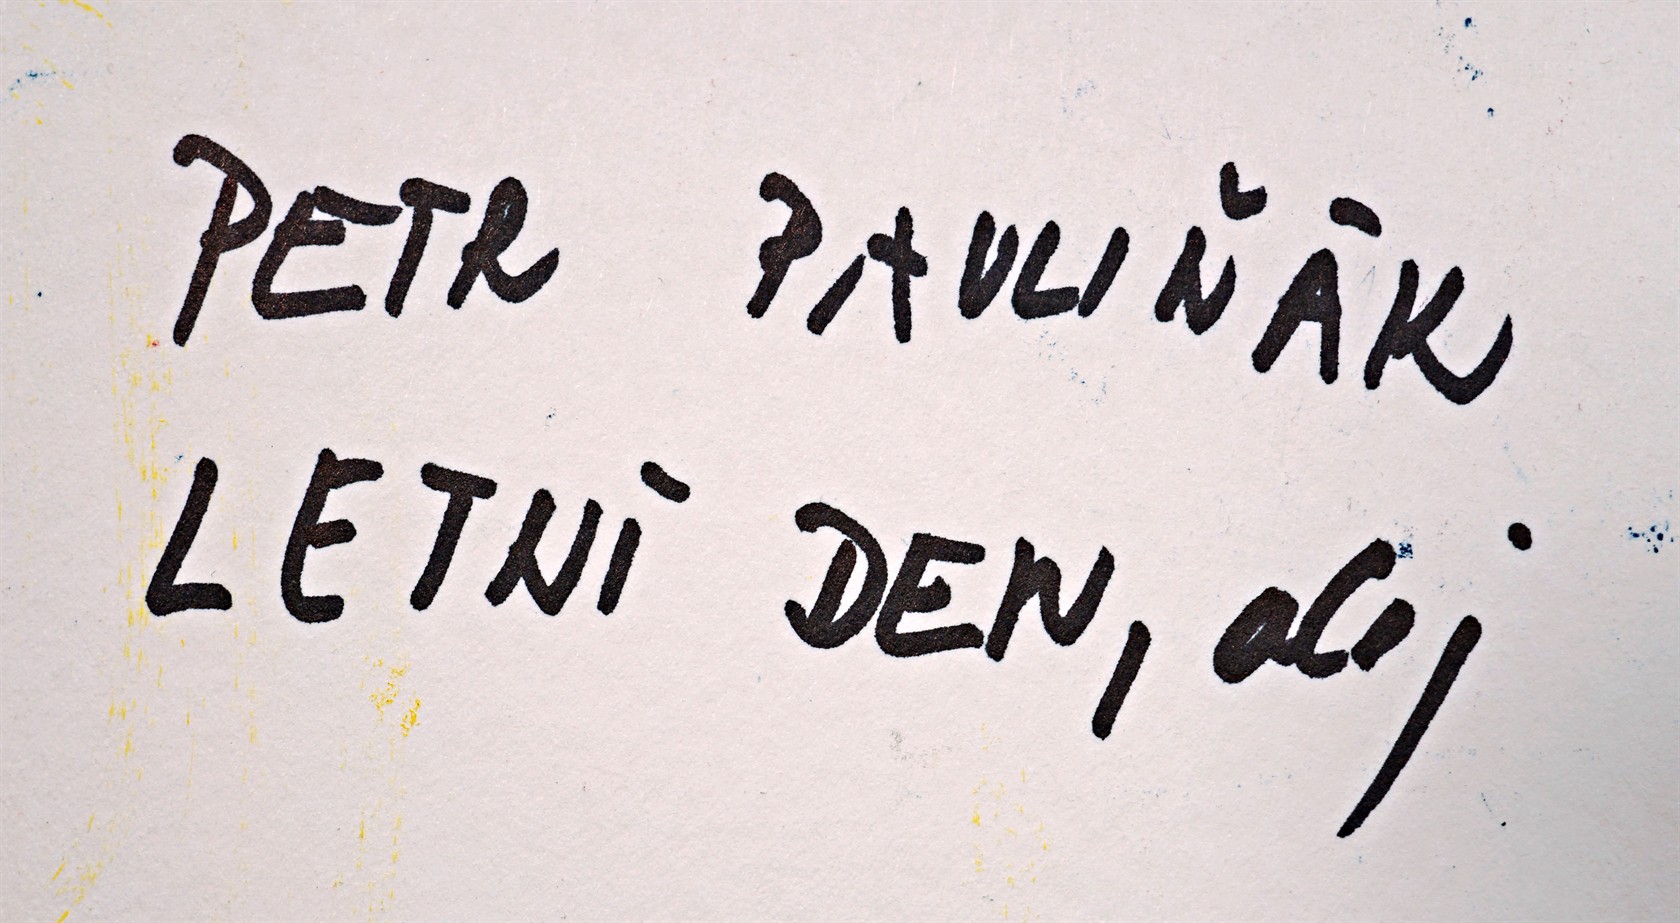 PETR PAVLIŇÁK
LETNÍ DEN, olej